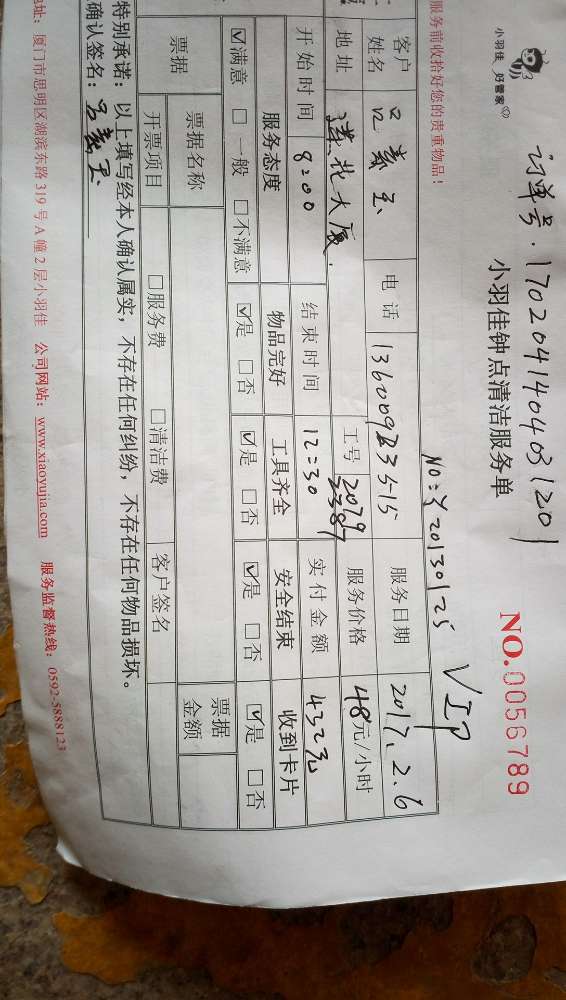 小羽佳 好管家
订单号·1702041404031201
小羽佳钟点清洁服务单
NO.0056789
NO:Y20130125 VIP
服务前收拾好您的贵重物品!
客户姓名 电话 服务日期 2017.2.6
地址 莲花大厦. 工号 2079 2387 服务价格 48元/小时
开始时间 8:00 结束时间 12:30 实付金额 432元
服务态度 物品完好 工具齐全 安全结束 收到卡片
☑满意 □一般 □不满意 ☑是 □否 ☑是 □否 ☑是 □否 ☑是 □否
票据 票据名称 □服务费 □清洁费 客户签名 票据金额
开票项目
特别承诺:以上填写经本人确认属实,不存在任何纠纷,不存在任何物品损坏。
确认签名:
地址:厦门市思明区湖滨东路319号A幢2层小羽佳 公司网站:www.xiaoyujia.com 服务监督热线:0592-5888123